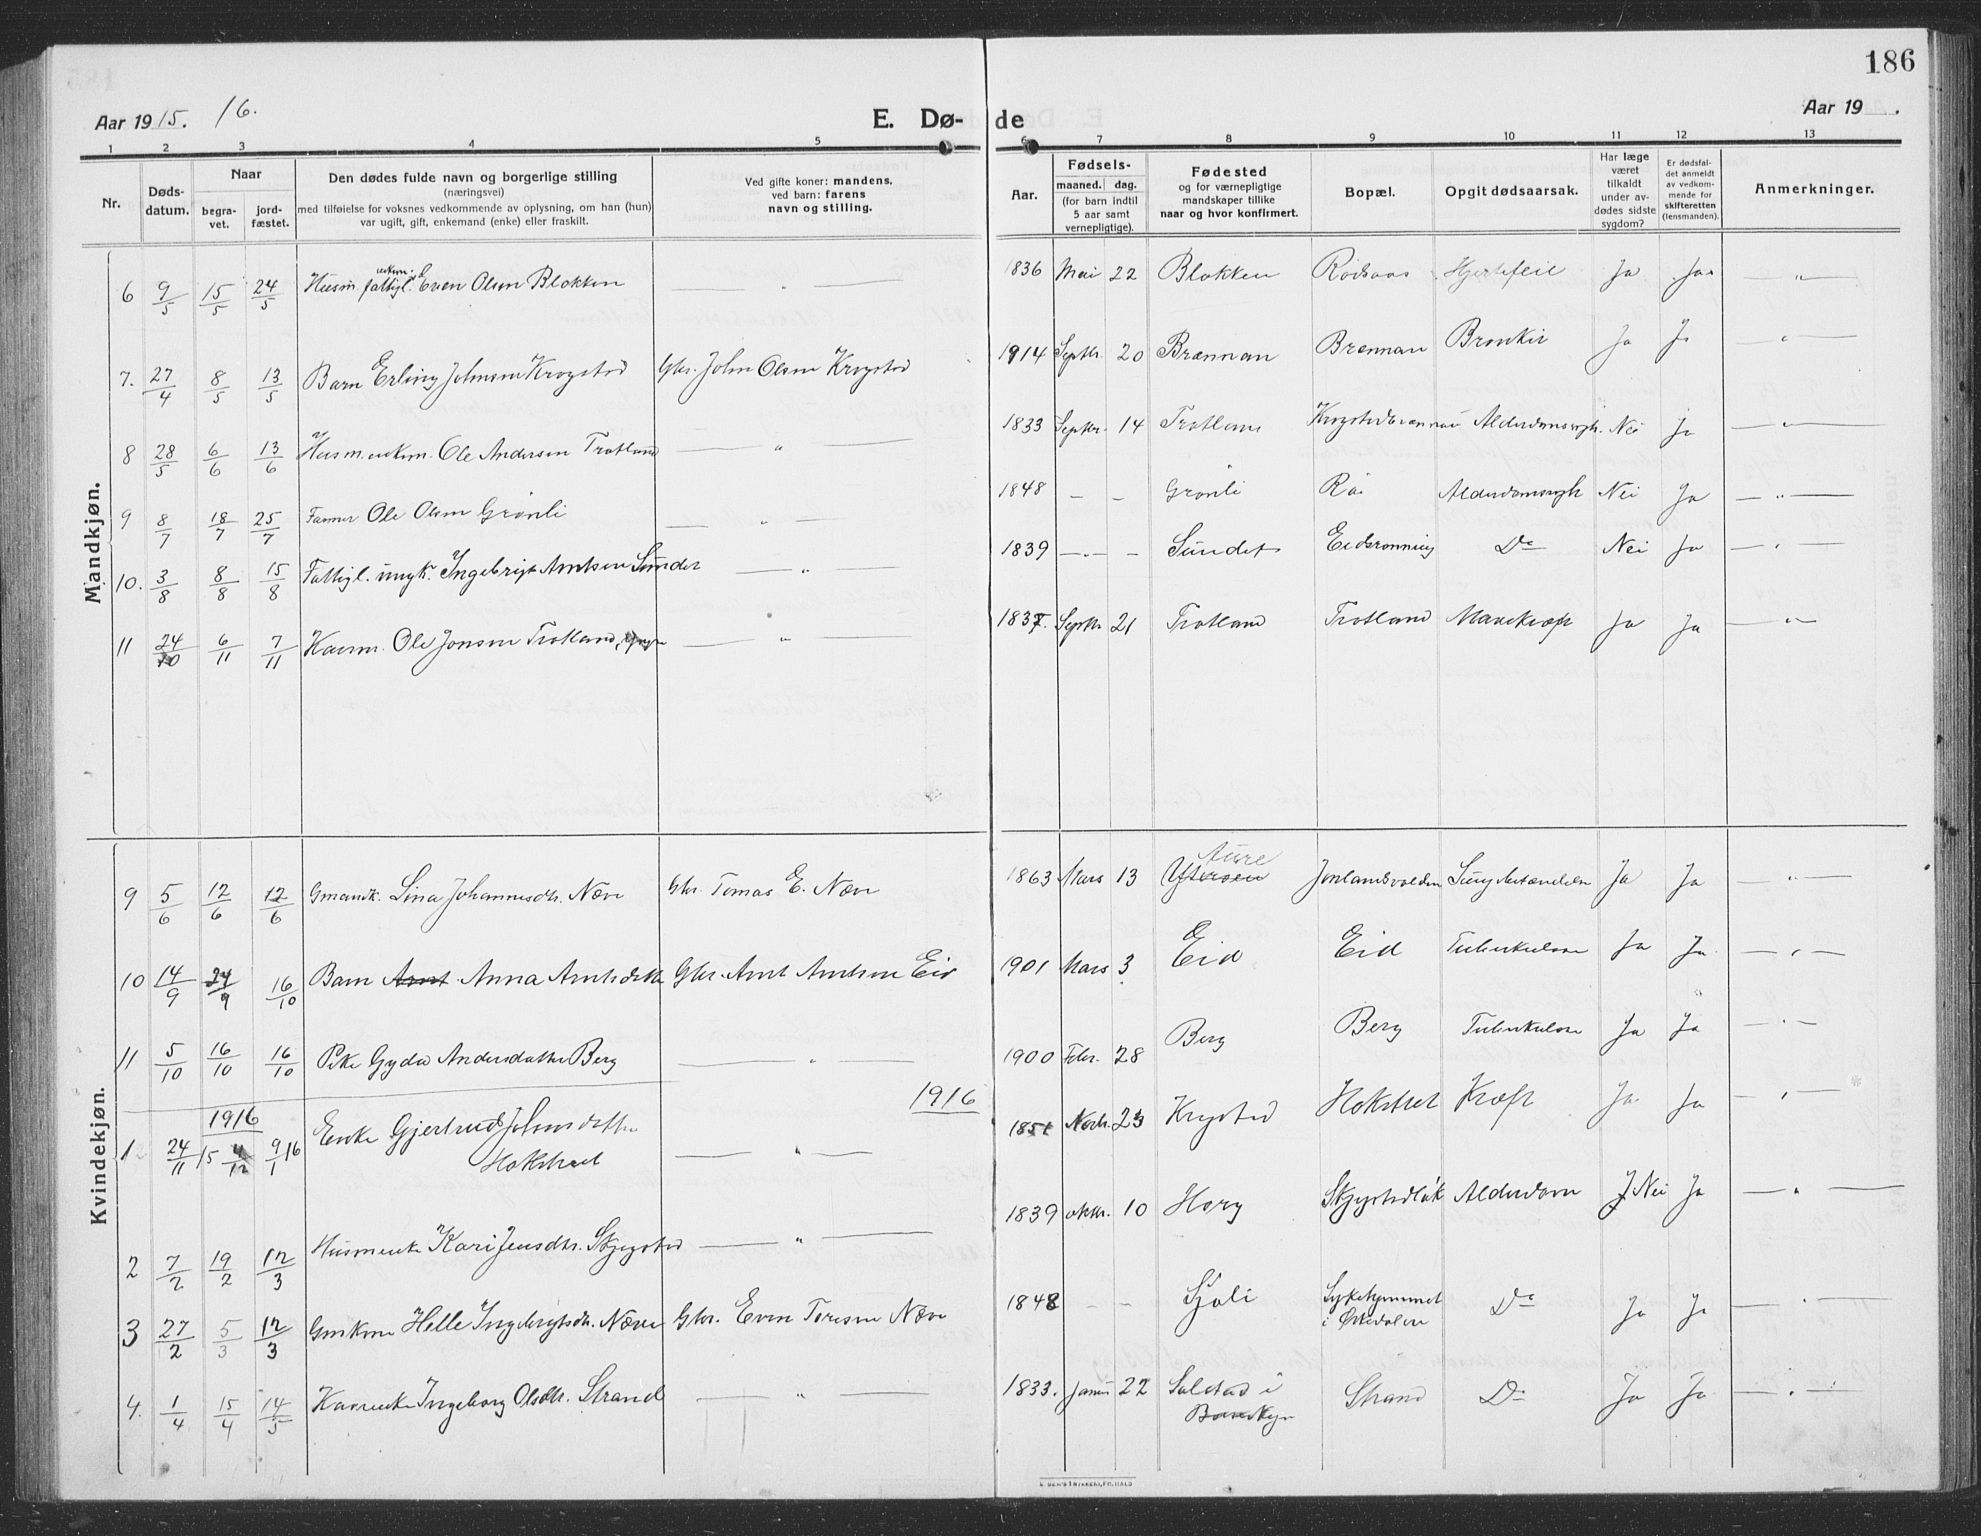 186
Aar 1915. 16.
E. Dø- de
Aar 19 .
1 2 3 4 5 6 7 8 9 10 11 12 13
Nr.
Døds-
datum.
Naar
begra-
vet.
jord-
fæstet.
Den dødes fulde navn og borgerlige stilling
(næringsvei)
med tilføielse for voksnes vedkommende av oplysning, om han (hun)
var ugift, gift, enkemand (enke) eller fraskilt.
Ved gifte koner: mandens,
ved barn: farens
navn og stilling.
Aar.
Fødsels-
maaned. dag.
(for barn indtil
5 aar samt
vernepligtige).
Fødested
og for værnepligtige
mandskaper tillike
naar og hvor konfirmert.
Bopæl.
Opgit dødsaarsak.
Har læge
været
tilkaldt
under av-
dødes sidste
sygdom?
Er dødsfal-
det anmeldt
av vedkom-
mende for
skifteretten
(lensmanden).
Anmerkninger.
Mandkjøn.
6 9/5 15/5 24/5 Husm. fattigl. Even Olsen Blokken " 1836 Mai 22 Blokken Rødsaas Hjertefeil Ja Ja "
7. 27/4 8/5 13/5 Barn Erling Johnsen Krogstad Gbr. John Olsen Krogstad 1914 Septbr. 20 Brennan Brennan Bronkit Ja Ja "
8 28/5 6/6 13/6 Husm.enkem. Ole Andersen Trotland " 1833 Septbr. 14 Trotland Alderdomssygh. Nei Ja "
9 8/7 18/7 25/7 Farmer Ole Olsen Grønli " 1848 - - Grønli Alderdomssygh Nei Ja "
10. 3/8 8/8 15/8 Fattigl. ungk. Ingebrigt Arntsen Sundet " 1839 - - Sundet Eidsrønning Do Nei Ja "
11 24/10 6/11 7/11 Kaarm. Ole Jonsen Trotland, " 1837. Septbr 21 Trotland Trotland Mavekræft Ja Ja "
Kvindekjøn.
9 5/6 12/6 12/6 Gmandk. Lina Johannesdtr. Næve Gbr. Tomas E. Næve 1863 Mars 13 Ytterøen Aure Jonlandsvolden Lungebetændelse Ja Ja "
10 14/9 24/9 16/10 Barn Arnt Anna Arntsdatter Gbr. Arnt Arntsen Eid 1901 Mars 3 Eid Eid Tuberkulose Ja Ja "
11 5/10 16/10 16/10 Pike Gyda Andersdatter Berg " 1900 Febr. 28 Berg Berg Tuberkulose Ja Ja "
1916 1916
1 24/11 15 4/12 9/1 16 Enke Gjertrud Johnsdatter
Hokstret " 1851 Novbr. 23 Krogstad Hokstret Kræft Ja Ja "
2 7/2 19/2 12/3 Husmenke Kari Jensdtr. Skjegstad " 1839 oktbr. 10 Horg Alderdom J Nei Ja "
3 27/2 5/3 12/3 Gmkone Helle Ingebrigtsdtr. Næve Gbr. Even Toresen Næve 1848 - - Sykehjemmet
i Ørkedalen Do Ja Ja "
4. 1/4 15/4 14/5 Kaarenke Ingeborg Olsdtr. Strand " 1833. Januar 22 Solstad i
Strand Do Ja Ja "